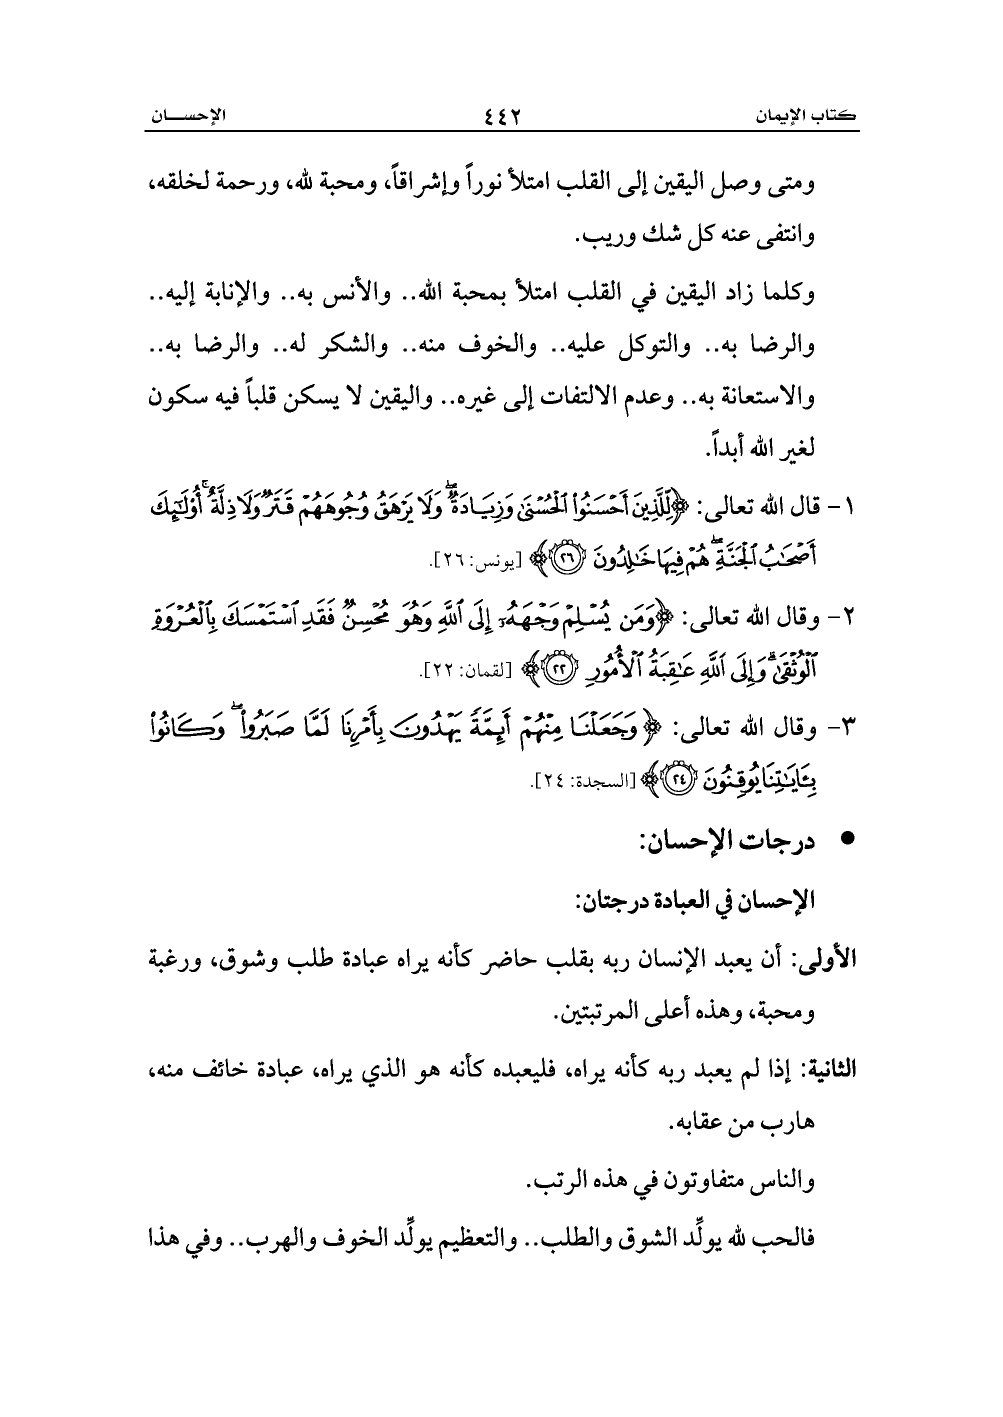 كتاب الإيمان ٤٤٢ الإحســـان
ومتى وصل اليقين إلى القلب امتلأ نوراً وإشراقاً، ومحبة لله، ورحمة لخلقه،
وانتفى عنه كل شك وريب.
وكلما زاد اليقين في القلب امتلأ بمحبة الله.. والأنس به.. والإنابة إليه..
والرضا به.. والتوكل عليه.. والخوف منه.. والشكر له.. والرضا به..
والاستعانة به.. وعدم الالتفات إلى غيره.. واليقين لا يسكن قلباً فيه سكون
لغير الله أبداً.
١- قال الله تعالى: ﴿لِّلَّذِينَ أَحْسَنُوا۟ ٱلْحُسْنَىٰ وَزِيَادَةٌ ۖ وَلَا يَرْهَقُ وُجُوهَهُمْ قَتَرٌ وَلَا ذِلَّةٌ ۚ أُو۟لَـٰٓئِكَ
أَصْحَـٰبُ ٱلْجَنَّةِ ۖ هُمْ فِيهَا خَـٰلِدُونَ ٢٦﴾ [يونس: ٢٦].
٢- وقال الله تعالى: ﴿وَمَن يُسْلِمْ وَجْهَهُۥٓ إِلَى ٱللَّهِ وَهُوَ مُحْسِنٌ فَقَدِ ٱسْتَمْسَكَ بِٱلْعُرْوَةِ
ٱلْوُثْقَىٰ ۗ وَإِلَى ٱللَّهِ عَـٰقِبَةُ ٱلْأُمُورِ ٢٢﴾ [لقمان: ٢٢].
٣- وقال الله تعالى: ﴿وَجَعَلْنَا مِنْهُمْ أَئِمَّةً يَهْدُونَ بِأَمْرِنَا لَمَّا صَبَرُوا۟ ۖ وَكَانُوا۟
بِـَٔايَـٰتِنَا يُوقِنُونَ ٢٤﴾ [السجدة: ٢٤].
● درجات الإحسان:
الإحسان في العبادة درجتان:
الأولى: أن يعبد الإنسان ربه بقلب حاضر كأنه يراه عبادة طلب وشوق، ورغبة
ومحبة، وهذه أعلى المرتبتين.
الثانية: إذا لم يعبد ربه كأنه يراه، فليعبده كأنه هو الذي يراه، عبادة خائف منه،
هارب من عقابه.
والناس متفاوتون في هذه الرتب.
فالحب لله يولِّد الشوق والطلب.. والتعظيم يولِّد الخوف والهرب.. وفي هذا